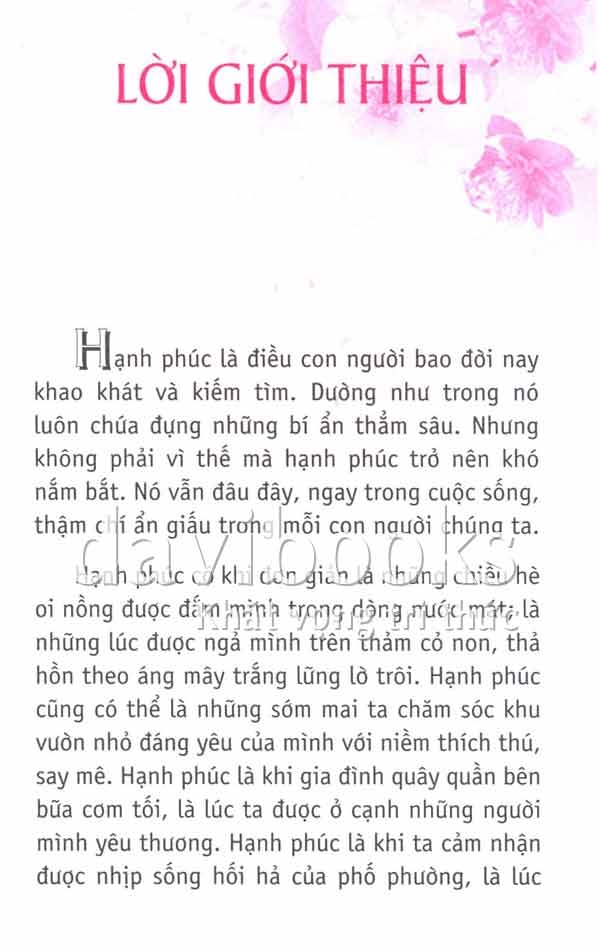 LỜI GIỚI THIỆU
Hạnh phúc là điều con người bao đời nay
khao khát và kiếm tìm. Dường như trong nó
luôn chứa đựng những bí ẩn thẳm sâu. Nhưng
không phải vì thế mà hạnh phúc trở nên khó
nắm bắt. Nó vẫn đâu đây, ngay trong cuộc sống,
thậm chí ẩn giấu trong mỗi con người chúng ta.
davibooks
Hạnh phúc có khi đơn giản là những chiều hè
oi nồng được đắm mình trong dòng nước mát; là
Khát vọng tri thức
những lúc được ngả mình trên thảm cỏ non, thả
hồn theo áng mây trắng lững lờ trôi. Hạnh phúc
cũng có thể là những sớm mai ta chăm sóc khu
vườn nhỏ đáng yêu của mình với niềm thích thú,
say mê. Hạnh phúc là khi gia đình quây quần bên
bữa cơm tối, là lúc ta được ở cạnh những người
mình yêu thương. Hạnh phúc là khi ta cảm nhận
được nhịp sống hối hả của phố phường, là lúc